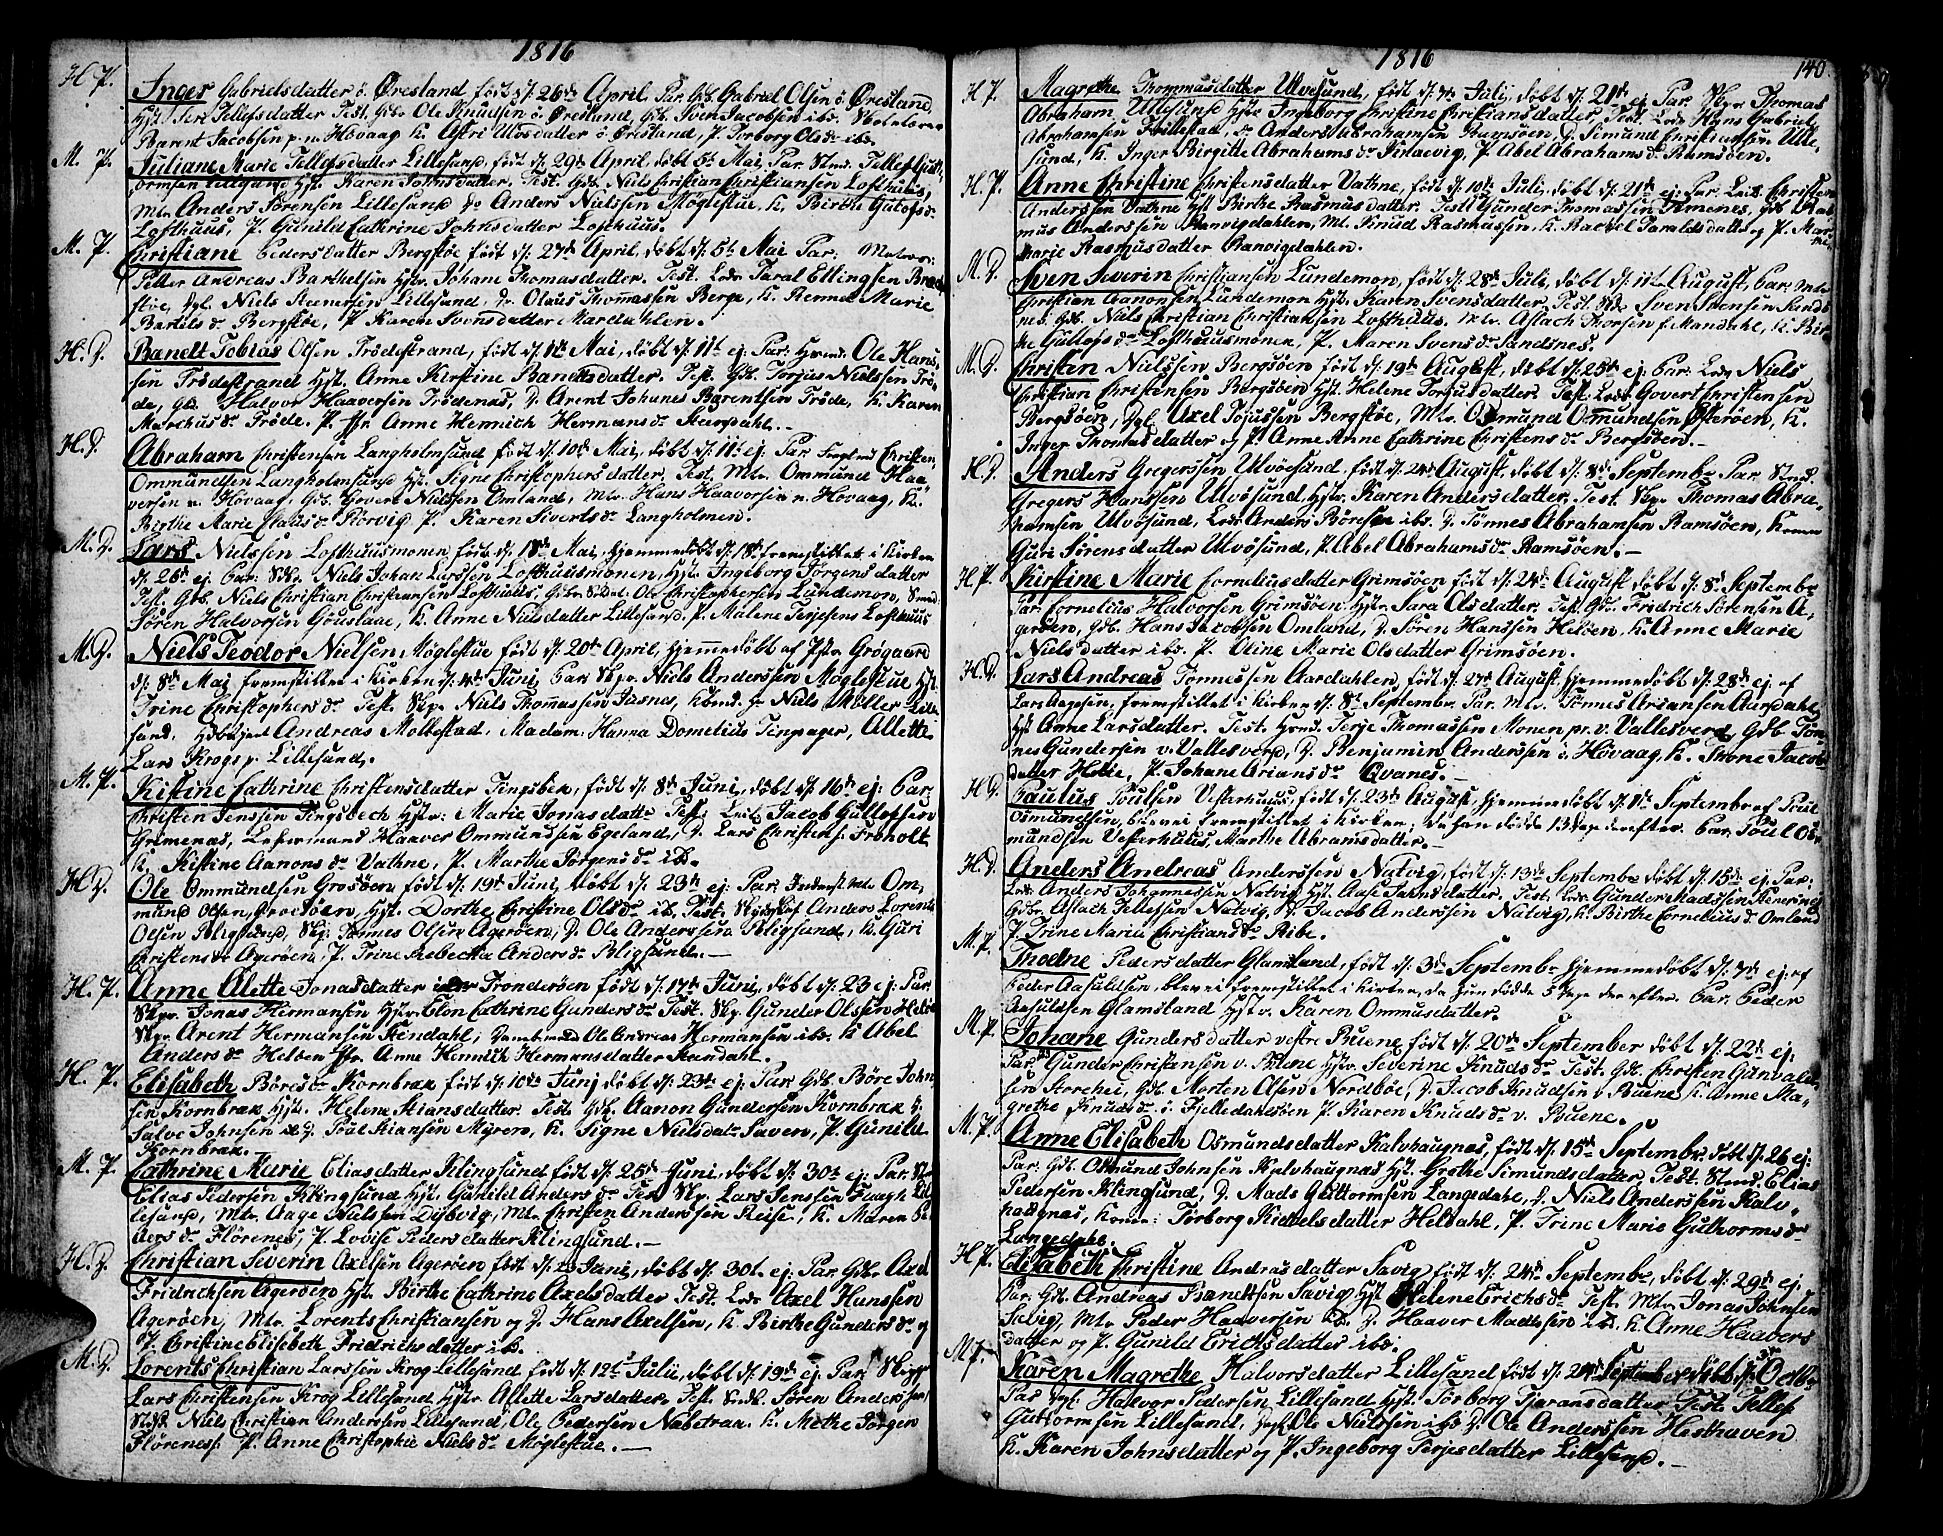 1816
H. P. Inger Gabrielsdatter ö. Øresland født d. 26de April. Par. Gdb. Gabriel Olsen ö. Øresland
Hst. Tellefsdatter Test. Gdb. Ole Knudsen ö. Øresland, Gdb. Sven Jacobsen ibs.
Barent Jacobsen p. n. Hövaag K. Asbri Ulvsdatter ö. Øresland, P. Torborg Olsdr. ibs.
M. P. Juliane Marie Tellefsdatter Lillesand, født d. 29de April, døbt 5te Mai, Par. Tellef Gutt-
ormsen Lillesand Hst. Karen Johnsdatter. Test. Gdb. Niels Christian Christiansen Lofthuus,
Mtr. Anders Sørensen Lillesand do Anders Nielssen Møglestue, K. Birthe Gutofsdr.
Lofthuus, P. Gunild Cathrine Johnsdatter Lofthuus.
M. P. Christiane Pedersdatter Bergstøe født d. 27de April, døbt d. 5te Mai Par:
Petter Andreas Barthelsen Hstr. Johane Thomasdatter. Test. Lods Taral Ellingsen
støe, Dgl. Niels Lillesand, D. Olaus Thommassen Berge, K. Marie
Bartels dr. Bergstøe, P. Karen Svensdatter Mardahlen.
H. D. Bandt Tobias Olsen Trödestrand, født d. 1te Mai, døbt d. 11te ej. Par: Ole Hans-
sen Trödestrand Hst. Anne Kirstine Bandtsdatter. Test. Gdb. Torjus Nielssen Trö-
de, Gdb. Halvor Haaversen Trödenas, D. Arent Johanes Barentsen Tröde, K. Karen
Marchusdr. Tröde. P. Jfr. Anne Hennich Hermansdr.
H. D. Abraham Christensen Langholmsund født d. 10de Mai, døbt d. 11te ej. Par. Christen
Ommundsen Langholmsund Hst. Signe Christophersdatter, Test. Mtr. Ommund Haa-
versen n. Hövaag, Gdb. Govert Nielssen Omland, Mtr. Hans Haaversen n. Hövaag, K.
Birthe Marie Clausdr. Rörvig P. Karen Sivertsdr. Langholmen.
M. D. Lars Nielssen Lofthuusmonen født d. 18de Mai, hjemmedøbt d. 18de fremstillet i Kirken
d. 26de ej. Par: Niels Johan Larssen Lofthuusmonen, Hst. Ingeborg Jörgensdatter
Test. Gdb. Niels Christian Christiansen Lofthuus, Ole Christophersen Lundemon,
Sören Halvorsen K. Anne Nielsdatter Lillesand. P. Malene Terjesens Lofthuus
M. D. Niels Teodor Nielsen Møglestue født d. 20de April, hjemmedøbt af Pstr. Grögaard
d. 8de Mai fremstillet i Kirken d. 4de Juni, Par. Skpr. Niels Anderssen Møglestue Hst.
Trine Christophersdr. Test. Skpr. Niels Thommassen Niels Møller Lille-
sand, Andreas Molbestad, Madam: Hanna Domelius Tingsager, Allette
Lars Krogs p. Lillesand.
M. P. Kistine Cathrine Christensdatter Tingsbek, født d. 8de Juni, døbt d. 16de ej: Par.
Christen Jenssen Tingsbech Hstr: Marie Jonasdatter Test: Jacob Gullofsen
Grimenas, Haaver Ommundsen Egeland, D. Lars Christens: Frøholt
K. Kistine Aanonsdr. Vathne, P. Marthe Jörgensdr. ibs.
H. D. Ole Ommundsen Grosöen født d. 19de Juni, døbt d. 23de ej: Par. Om-
mund Olsen, Hst. Dorthe Christine Olsdr. ibs. Test. Anders Lorents
Olsen Skp: Tönnes Olsen Agerøen, D. Ole Anderssen K. Guri
Christensdr. Agerøen, P. Trine Rebecka Andersdr.
H. P. Anne Alette Jonasdatter Trondersöen født d. 17de Juni, døbt d. 23 ej: Par.
Skpr. Jonas Hermansen Hstr. Elen Cathrine Gundersdr. Test. Skp. Gunder Olssen
Skp. Arent Hermansen Ole Andreas Hermansen ibs. K. Abel
Andersdr. Helöen Jfr. Anne Hennich Hermansdatter
H. P. Elisabeth Böresdr. Kornbrak født d. 10de Junj døbt d. 23de ej: Par. Gdb. Böre John-
sen Kornbrak Hst. Helene Stiansdatter. Test. Gdb. Aanon Gundersen Kornbrak
Salve Johnsen D. Poul Stiansen Myrero, K. Signe Nielsdatr. Saven, P. Gunild
Kornbrak.
M. P. Cathrine Marie Eliasdatter Klingsund født d. 25de Juni, døbt d. 30te ej: Par.
Elias Pedersen Klingsund Hst. Gunild Andersdr. Test. Skp. Lars Jenssen Lil-
lesand, Mtr. Aage Nielssen Dybvig, Mtr. Christen Anderssen K. Maren Pe-
ders dr. Flörenes, P. Lovise Pedersdatter Klingsund.
H. D. Christian Severin Axelsen Agerøen født d. Juni, døbt d. 30t. ej: Par. Gdb. Axel
Fridrichsen Agerøen Hst. Birthe Cathrine Axelsdatter Test. Axel Hanssen
Agerøen, Mtr. Lorents Christiansen og D. Hans Axelsen, K. Birthe Gundersdr. og
P. Christine Elisabeth Fridrichsdatter ibs.
M. D. Lorents Christian Larssen Krog Lillesand født d. 12te Julii, døbt d. 19de ej Par: Skpr.
Lars Christensen Krog Lillesand Hst. Allette Larsdatter Test. Sören Anders
Niels Christian Andersen Lillesand, Ole Pedersen K. Methe Jörgen
Flörenes. P. Anne Christophie Nielsdr. Møglestue.
1816
140
H. P. Magrethe Thommasdatter Ulvesund, født d. Juli, døbt d. 21de ej Par. Skpr. Thomas
Abraham Ulvesund Hst. Ingeborg Christine Christiansdatter, Test. Lods Hans Gabriel
Abrahamsen Anders Abrahamsen Ramsöen, D. Simund Christiansen Ulve-
sund, K. Inger Birgitte Abrahamsdr. P. Abel Abrahamsdr. Ramsöen.
H. P. Anne Christine Christensdatter Vathne, født d. 10de Juli, døbt d. 21de ej: Par. Christen
Anderssen Vathne Hst. Birthe Rasmusdatter. Test. Gunder Thomassen Gdb. Ras-
mus Anderssen Ranvigdahlen, Mt. Knud Rasmussen, K. Rachel Taraldsdatter og P. Mar-
Marie Rasmusdatter Ranvigdahlen.
M. D. Sven Severin Christiansen Lundemon, født d. 28de Juli, døbt d. 11te August, Par. Mtr.
Christian Aanonsen Lundemon Hst. Karen Svensdatter. Test. Sven Svensen Sands-
nes. Gdb. Niels Christian Christiansen Lofthuus. Mtr. Aslach Thorsen f. Mandahl, K. Bir-
the Gullofsdr. Lofthuusmonen, P. Maren Svensdr. Sandsnes.
M. D. Christen Nielssen Bergsöen født d. 19de August, døbt d. 25de ej: Par. Lods Niels
Christian Christensen Bergsöen Hst. Helene Torjusdatter. Test Lods Govert Christensen
Bergsöen, Dgl. Axel Tojussen Bergstøe, Mtr. Osmund Ommundsen Østerøen, K.
Inger Thomasdatter og P. Anne Anne Cathrine Christensdr. Bergsöen.
H. D. Anders Gregerssen Ulvöesund, født d. 24de August, døbt d. 8de September Par.
Gregers Hanssen Ulvösund, Hst. Karen Andersdatter, Test. Skpr Thomas Abra-
hamsen Ulvösund, Lods Anders Böresen ibs. D. Tönnes Abrahamsen Ramsöen, Konen
Guri Sörensdatter Ulvösund, P. Abel Abrahamsdr. Ramsöen.
H. P. Kirstine Marie Corneliusdatter Grimsöen født d. 24de August døbt d. 8de Septembr.
Par. Cornelius Halvorsen Grimsöen, Hstr. Sara Olsdatter. Test. Gdb. Fridrich Sörensen A-
gerøen, Gdb. Hans Jacobsen Omland, D. Sören Hanssen Helöen, K. Anne Marie
Nielsdatter ibs. P. Oline Marie Olsdatter Grimsöen.
H. D. Lars Andreas Tönnessen Aardahlen, født d. 27de August hjemmedøbt d. 28de ej. af
fremstillet i Kirken d. 8de Septembr. Par. Mtr. Tönnes Ariansen Aardahl
Hst. Anne Larsdatter. Test. Terje Thomassen Monen pr. v. Vallesverd, Gdb. Tön-
nes Gundersen v. Vallesverd, D. Benjamin Anderssen i Hövaag, K. Thone Jacobs-
datter P. Johane Ariansdr. Qvanes.
H. D. Paulus Poulsen Vesterhuus, født d. 23de August, hjemmedøbt d. 1te September af Poul
Osmundsen, blev ei fremstillet i Kirken, da han døde 13 Dage derefter. Par. Poul Os-
mundsen Vesterhuus, Marthe Abramsdatter.
H. D. Anders Andreas Anderssen Natvig, født d. 13de Septembr. døbt d. 15de ej: Par:
Lods Anders Johannessen Natvig Hst. Aase Jahnsdatter. Test. Lods Gunder Madssen
Gdbr. Aslach Tellefsen Natvig, D. Jacob Anderssen Natvig, K. Birthe Corneliusdr. Omland
P. Trine Maria Christiansdr. Ribe.
M. P. Thodne Pedersdatter Glamsland, født d. 3de Septembr. hjemmedøbt d. 7de ej: af
Peder Aasuldsen, blev ei fremstillet i Kirken, da hun døde 5 Dage derefter. Par. Peder
Aasuldsen Glamsland Hst. Karen Ommusdatter.
M. P. Johane Gundersdatter vestre Ruene født d. 20de September døbt d. 22de ej:
Par. Gunder Christensen v. Hstr. Severine Knudsdr. Test. Gdb. Christen Gunvald-
sen Gdb. Morten Alsen Nordböe, D. Jacob Knudsen v. Ruene K. Anne Ma-
grethe Knudsdr. i. P. Karen Knudsdr. v. Ruene.
M. P. Anne Elisabeth Osmundsdatter Kalvhaugnas, født d. 15de September, døbt d. 26 ej:
Par. Gdb. Osmund Johnsen Kalvhaugnas Hst. Grethe Simundsdatter, Test. Elias
Pedersen Klingsund, D. Mads Guttormsen Langedahl, D. Niels Anderssen Kalv-
haugnas, Konen: Torborg Kiddelsdatter Heldahl, P. Trine Marie Guthormsdr.
Langedahl.
H. P. Elisabeth Christine Andrasdatter Savig, født d. 24de Septembr, døbt d. 29de ej.
Par. Gdb. Andreas Bandtsen Savig Hst. Helene Erichsdr. Test. Mtr. Jonas Johnsen
Savig, Mtr. Peder Haaversen ibs. D. Haaver Madssen ibs. K. Anne Haavers-
datter og P. Gunild Erichsdatter ibs.
M. P. Karen Magrethe Halvorsdatter Lillesand født d. 24de September døbt d. Octbr.
Par. Dgl. Halvor Pedersen Lillesand Hst. Torborg Tjøransdatter Test. Tellef
Guttormsen Lillesand, Ole Nielssen ibs D. Ole Anderssen Hesthaven
K. Karen Johnsdatter og P. Ingeborg Terjesdatter Lillesand.